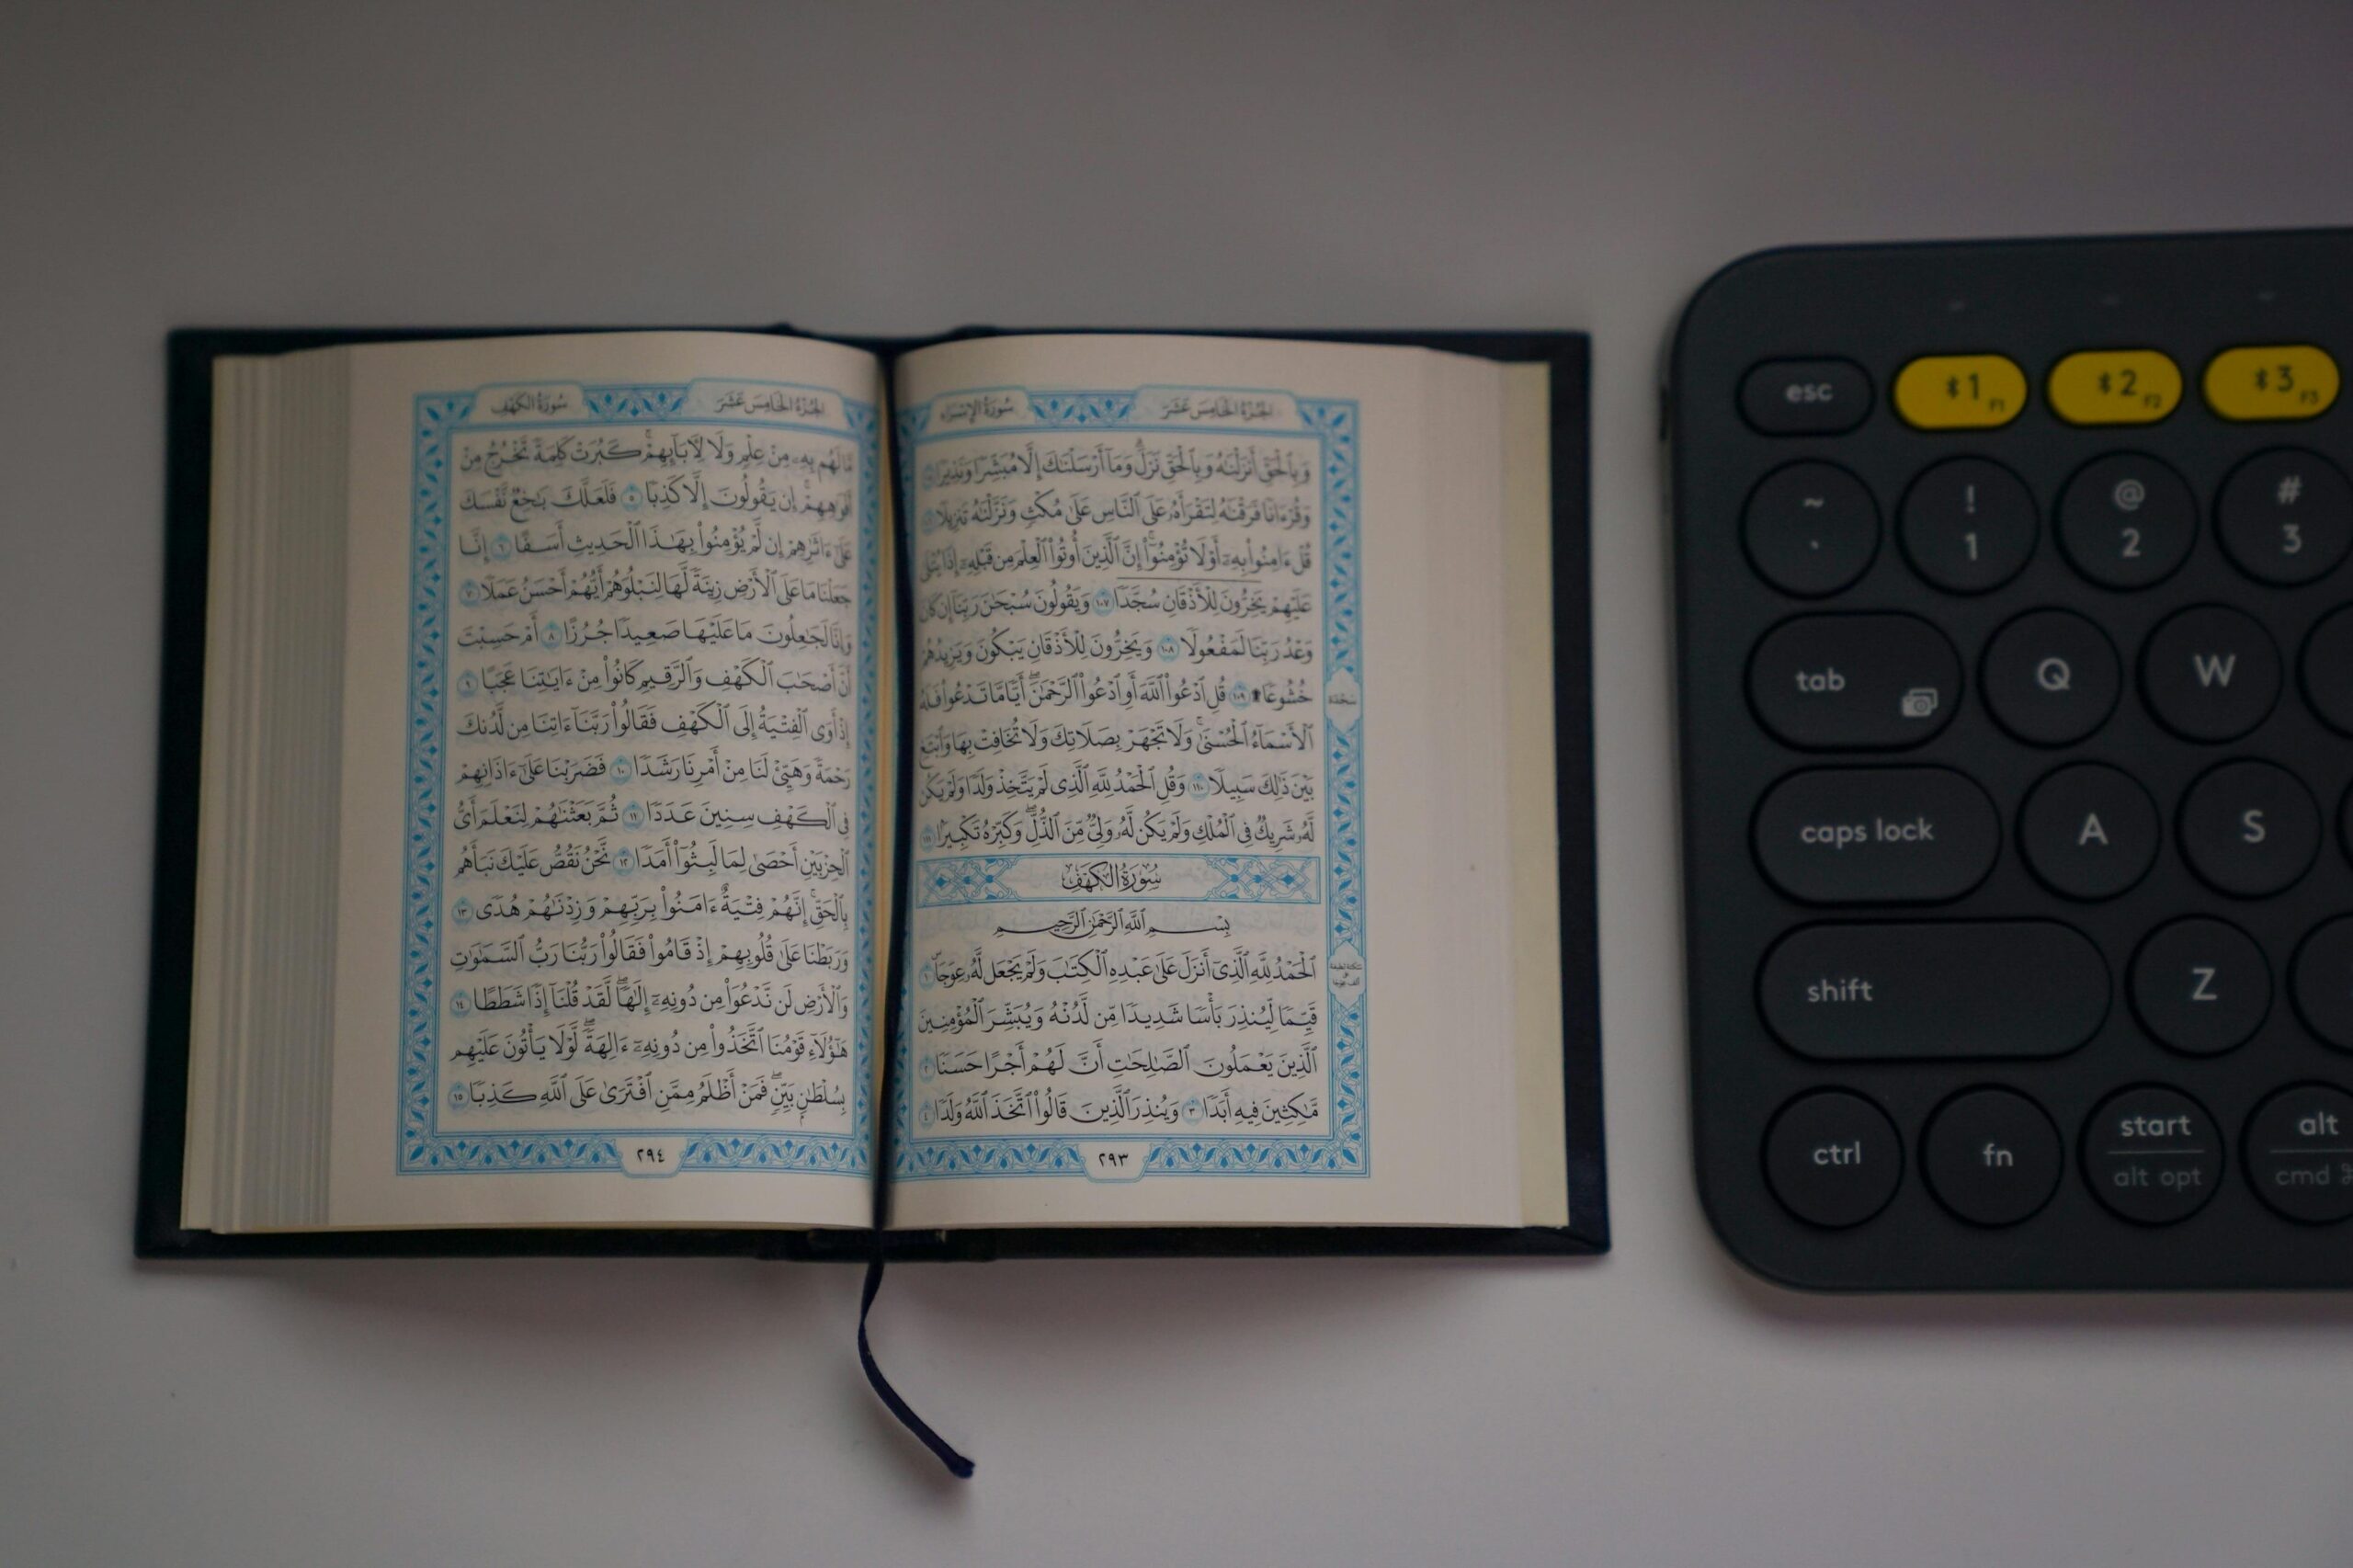 الجزء الخامس عشر
سورة الإسراء
وَبِٱلْحَقِّ أَنزَلْنَٰهُ وَبِٱلْحَقِّ نَزَلَ ۗ وَمَآ أَرْسَلْنَٰكَ إِلَّا مُبَشِّرًا وَنَذِيرًا
وَقُرْءَانًا فَرَقْنَٰهُ لِتَقْرَأَهُۥ عَلَى ٱلنَّاسِ عَلَىٰ مُكْثٍ وَنَزَّلْنَٰهُ تَنزِيلًا
قُلْ ءَامِنُوا۟ بِهِۦٓ أَوْ لَا تُؤْمِنُوٓا۟ ۚ إِنَّ ٱلَّذِينَ أُوتُوا۟ ٱلْعِلْمَ مِن قَبْلِهِۦٓ إِذَا يُتْلَىٰ
عَلَيْهِمْ يَخِرُّونَ لِلْأَذْقَانِ سُجَّدًا ١٠٧ وَيَقُولُونَ سُبْحَٰنَ رَبِّنَآ إِن كَانَ
وَعْدُ رَبِّنَا لَمَفْعُولًا ١٠٨ وَيَخِرُّونَ لِلْأَذْقَانِ يَبْكُونَ وَيَزِيدُهُمْ
خُشُوعًا ۩ ١٠٩ قُلِ ٱدْعُوا۟ ٱللَّهَ أَوِ ٱدْعُوا۟ ٱلرَّحْمَٰنَ ۖ أَيًّا مَّا تَدْعُوا۟ فَلَهُ
ٱلْأَسْمَآءُ ٱلْحُسْنَىٰ ۚ وَلَا تَجْهَرْ بِصَلَاتِكَ وَلَا تُخَافِتْ بِهَا وَٱبْتَغِ
بَيْنَ ذَٰلِكَ سَبِيلًا ١١٠ وَقُلِ ٱلْحَمْدُ لِلَّهِ ٱلَّذِى لَمْ يَتَّخِذْ وَلَدًا وَلَمْ يَكُن
لَّهُۥ شَرِيكٌ فِى ٱلْمُلْكِ وَلَمْ يَكُن لَّهُۥ وَلِىٌّ مِّنَ ٱلذُّلِّ ۖ وَكَبِّرْهُ تَكْبِيرًۢا
سجدة
سُورَةُ الكَهْفِ
بِسْمِ ٱللَّهِ ٱلرَّحْمَٰنِ ٱلرَّحِيمِ
ٱلْحَمْدُ لِلَّهِ ٱلَّذِىٓ أَنزَلَ عَلَىٰ عَبْدِهِ ٱلْكِتَٰبَ وَلَمْ يَجْعَل لَّهُۥ عِوَجَا ۜ ١
قَيِّمًا لِّيُنذِرَ بَأْسًا شَدِيدًا مِّن لَّدُنْهُ وَيُبَشِّرَ ٱلْمُؤْمِنِينَ
ٱلَّذِينَ يَعْمَلُونَ ٱلصَّٰلِحَٰتِ أَنَّ لَهُمْ أَجْرًا حَسَنًا ٢
مَّٰكِثِينَ فِيهِ أَبَدًا ٣ وَيُنذِرَ ٱلَّذِينَ قَالُوا۟ ٱتَّخَذَ ٱللَّهُ وَلَدًا ٤
٢٩٣
الجزء الخامس عشر
سورة الكهف
مَّا لَهُم بِهِۦ مِنْ عِلْمٍ وَلَا لِءَابَآئِهِمْ ۚ كَبُرَتْ كَلِمَةً تَخْرُجُ مِنْ
أَفْوَٰهِهِمْ ۚ إِن يَقُولُونَ إِلَّا كَذِبًا ٥ فَلَعَلَّكَ بَٰخِعٌ نَّفْسَكَ
عَلَىٰٓ ءَاثَٰرِهِمْ إِن لَّمْ يُؤْمِنُوا۟ بِهَٰذَا ٱلْحَدِيثِ أَسَفًا ٦ إِنَّا
جَعَلْنَا مَا عَلَى ٱلْأَرْضِ زِينَةً لَّهَا لِنَبْلُوَهُمْ أَيُّهُمْ أَحْسَنُ عَمَلًا ٧
وَإِنَّا لَجَٰعِلُونَ مَا عَلَيْهَا صَعِيدًا جُرُزًا ٨ أَمْ حَسِبْتَ
أَنَّ أَصْحَٰبَ ٱلْكَهْفِ وَٱلرَّقِيمِ كَانُوا۟ مِنْ ءَايَٰتِنَا عَجَبًا ٩
إِذْ أَوَى ٱلْفِتْيَةُ إِلَى ٱلْكَهْفِ فَقَالُوا۟ رَبَّنَآ ءَاتِنَا مِن لَّدُنكَ
رَحْمَةً وَهَيِّئْ لَنَا مِنْ أَمْرِنَا رَشَدًا ١٠ فَضَرَبْنَا عَلَىٰٓ ءَاذَانِهِمْ
فِى ٱلْكَهْفِ سِنِينَ عَدَدًا ١١ ثُمَّ بَعَثْنَٰهُمْ لِنَعْلَمَ أَىُّ
ٱلْحِزْبَيْنِ أَحْصَىٰ لِمَا لَبِثُوٓا۟ أَمَدًا ١٢ نَّحْنُ نَقُصُّ عَلَيْكَ نَبَأَهُم
بِٱلْحَقِّ ۚ إِنَّهُمْ فِتْيَةٌ ءَامَنُوا۟ بِرَبِّهِمْ وَزِدْنَٰهُمْ هُدًى ١٣
وَرَبَطْنَا عَلَىٰ قُلُوبِهِمْ إِذْ قَامُوا۟ فَقَالُوا۟ رَبُّنَا رَبُّ ٱلسَّمَٰوَٰتِ
وَٱلْأَرْضِ لَن نَّدْعُوَا۟ مِن دُونِهِۦٓ إِلَٰهًا ۖ لَّقَدْ قُلْنَآ إِذًا شَطَطًا ١٤
هَٰٓؤُلَآءِ قَوْمُنَا ٱتَّخَذُوا۟ مِن دُونِهِۦٓ ءَالِهَةً ۖ لَّوْلَا يَأْتُونَ عَلَيْهِم
بِسُلْطَٰنٍۭ بَيِّنٍ ۖ فَمَنْ أَظْلَمُ مِمَّنِ ٱفْتَرَىٰ عَلَى ٱللَّهِ كَذِبًا ١٥
٢٩٤
esc 1 F1 2 F2 3 F3
~ ! @ #
` 1 2 3
tab Q W
caps lock A S
shift Z
ctrl fn start alt
alt opt cmd ⌘